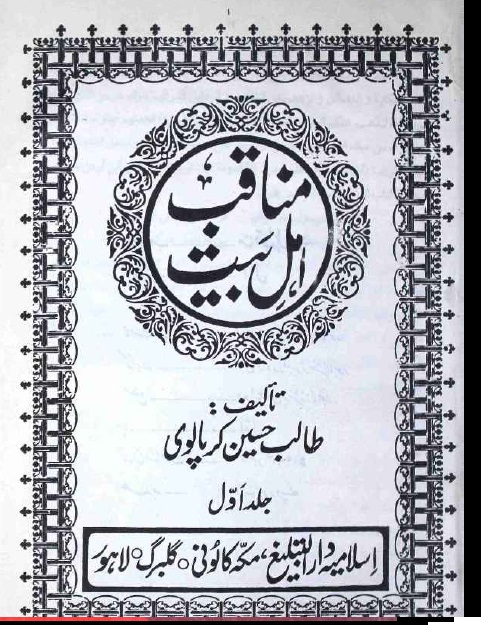 ۱
مناقب
اہلِ بیت
تألیف:
طالب حسین کرپالوی
جلد اوّل
اسلامیہ دار التبلیغ، مکہ کالونی ○ گلبرگ ○ لاہور